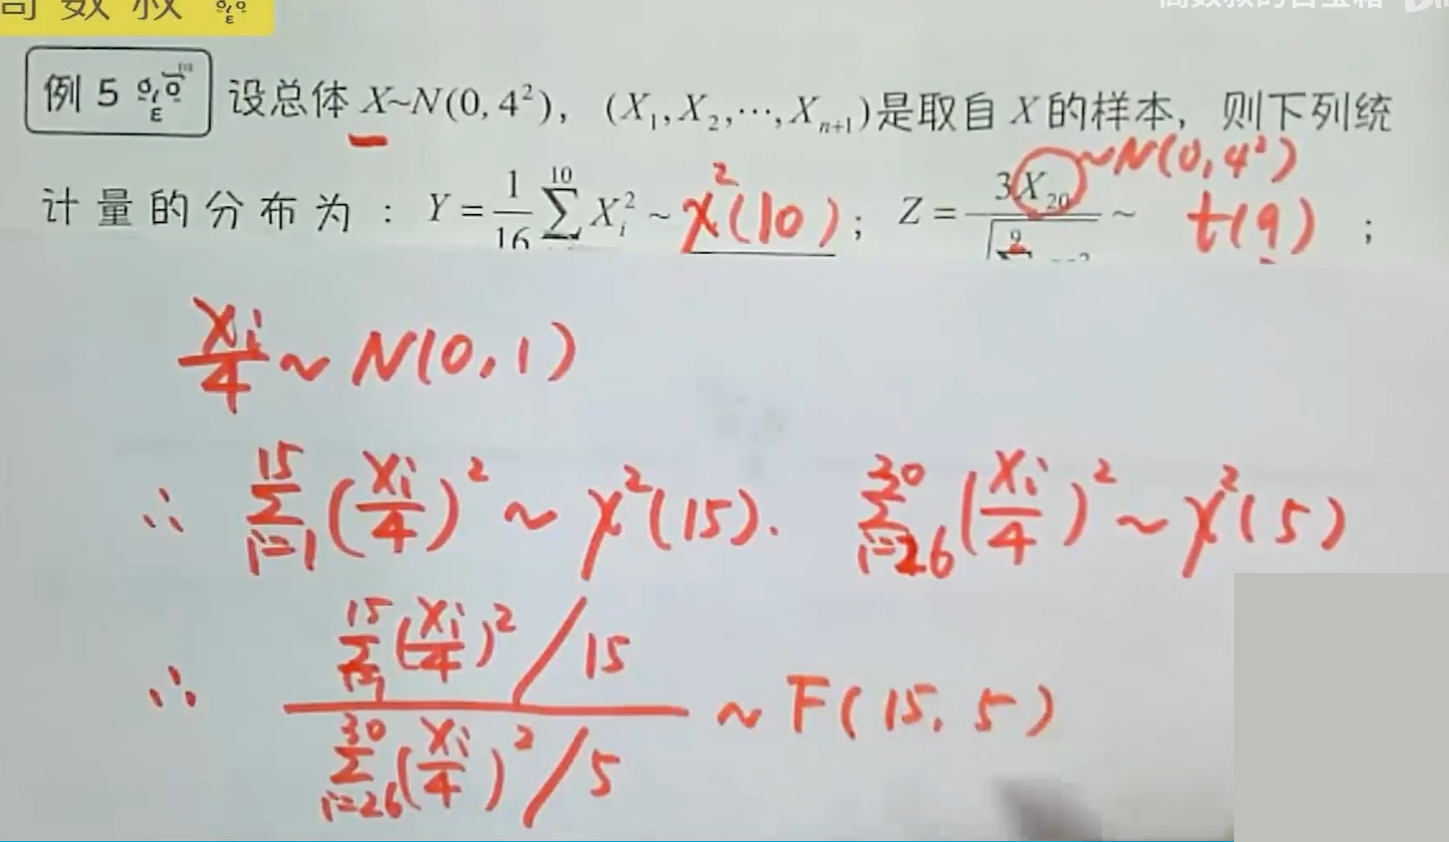 高数叔
例 5 设总体 X~N(0, 4²), (X₁, X₂, ···, Xₙ₊₁)是取自 X 的样本, 则下列统
~N(0, 4²)
计量的分布为: Y = 1/16 ∑ 10 Xᵢ² ~ χ²(10); Z = 3X₂₀ / √ 9 ~ t(9);
Xi/4 ~ N(0, 1)
∴ ∑_{i=1}^{15} (Xi/4)² ~ χ²(15). ∑_{i=26}^{30} (Xi/4)² ~ χ²(5)
∴ ∑_{i=1}^{15} (Xi/4)² / 15
~ F(15, 5)
∑_{i=26}^{30} (Xi/4)² / 5